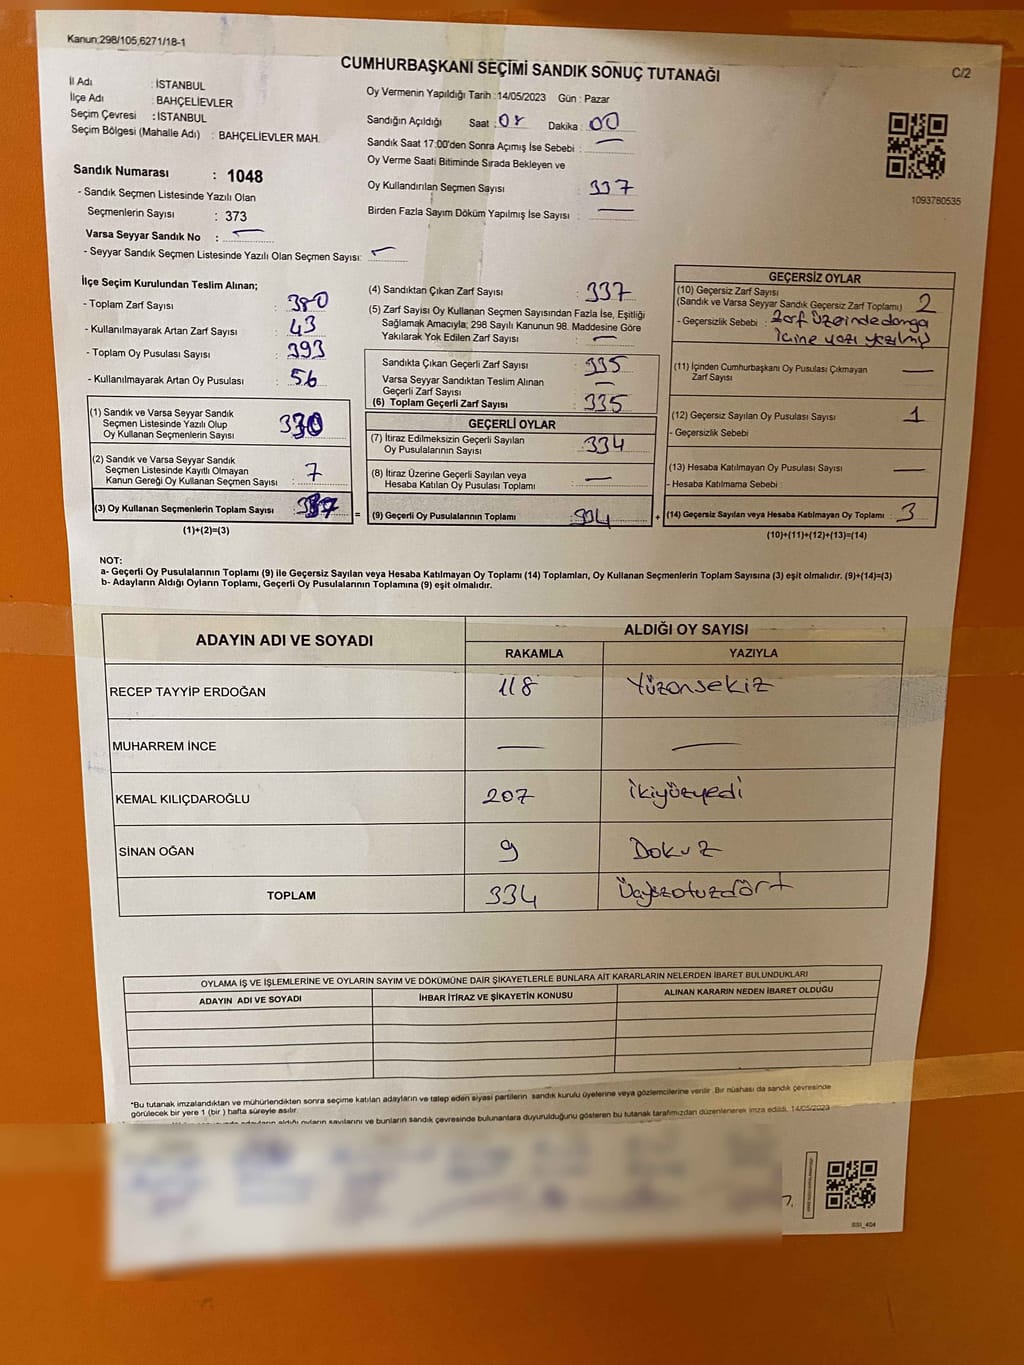 Kanun;298/105,6271/18-1
CUMHURBAŞKANI SEÇİMİ SANDIK SONUÇ TUTANAĞI
C/2
İl Adı : İSTANBUL
İlçe Adı : BAHÇELİEVLER
Seçim Çevresi : İSTANBUL
Seçim Bölgesi (Mahalle Adı) : BAHÇELİEVLER MAH.
Oy Vermenin Yapıldığı Tarih :14/05/2023 Gün : Pazar
Sandığın Açıldığı Saat : 08 Dakika : 00
Sandık Saat 17:00'den Sonra Açımış İse Sebebi : —
Oy Verme Saati Bitiminde Sırada Bekleyen ve
Oy Kullandırılan Seçmen Sayısı : 337
Birden Fazla Sayım Döküm Yapılmış İse Sayısı : —
1093780535
Sandık Numarası : 1048
- Sandık Seçmen Listesinde Yazılı Olan
Seçmenlerin Sayısı : 373
Varsa Seyyar Sandık No : —
- Seyyar Sandık Seçmen Listesinde Yazılı Olan Seçmen Sayısı: —
İlçe Seçim Kurulundan Teslim Alınan;
- Toplam Zarf Sayısı : 380
- Kullanılmayarak Artan Zarf Sayısı : 43
- Toplam Oy Pusulası Sayısı : 393
- Kullanılmayarak Artan Oy Pusulası : 56
(1) Sandık ve Varsa Seyyar Sandık
Seçmen Listesinde Yazılı Olup
Oy Kullanan Seçmenlerin Sayısı : 330
(2) Sandık ve Varsa Seyyar Sandık
Seçmen Listesinde Kayıtlı Olmayan
Kanun Gereği Oy Kullanan Seçmen Sayısı : 7
(3) Oy Kullanan Seçmenlerin Toplam Sayısı : 337 =
(1)+(2)=(3)
(4) Sandıktan Çıkan Zarf Sayısı : 337
(5) Zarf Sayısı Oy Kullanan Seçmen Sayısından Fazla İse, Eşitliği
Sağlamak Amacıyla; 298 Sayılı Kanunun 98. Maddesine Göre
Yakılarak Yok Edilen Zarf Sayısı : —
Sandıkta Çıkan Geçerli Zarf Sayısı : 335
Varsa Seyyar Sandıktan Teslim Alınan
Geçerli Zarf Sayısı : —
(6) Toplam Geçerli Zarf Sayısı : 335
GEÇERLİ OYLAR
(7) İtiraz Edilmeksizin Geçerli Sayılan
Oy Pusulalarının Sayısı : 334
(8) İtiraz Üzerine Geçerli Sayılan veya
Hesaba Katılan Oy Pusulası Toplamı : —
(9) Geçerli Oy Pusulalarının Toplamı : 334 +
GEÇERSİZ OYLAR
(10) Geçersiz Zarf Sayısı
(Sandık ve Varsa Seyyar Sandık Geçersiz Zarf Toplamı) : 2
- Geçersizlik Sebebi : Zarf üzerinde damga
İçine yazı yazılmış
(11) İçinden Cumhurbaşkanı Oy Pusulası Çıkmayan
Zarf Sayısı : —
(12) Geçersiz Sayılan Oy Pusulası Sayısı : 1
- Geçersizlik Sebebi :
(13) Hesaba Katılmayan Oy Pusulası Sayısı : —
- Hesaba Katılmama Sebebi :
(14) Geçersiz Sayılan veya Hesaba Katılmayan Oy Toplamı : 3
(10)+(11)+(12)+(13)=(14)
NOT:
a- Geçerli Oy Pusulalarının Toplamı (9) ile Geçersiz Sayılan veya Hesaba Katılmayan Oy Toplamı (14) Toplamları, Oy Kullanan Seçmenlerin Toplam Sayısına (3) eşit olmalıdır. (9)+(14)=(3)
b- Adayların Aldığı Oyların Toplamı, Geçerli Oy Pusulalarının Toplamına (9) eşit olmalıdır.
ADAYIN ADI VE SOYADI
ALDIĞI OY SAYISI
RAKAMLA YAZIYLA
RECEP TAYYİP ERDOĞAN 118 Yüzonsekiz
MUHARREM İNCE — —
KEMAL KILIÇDAROĞLU 207 İkiyüzyedi
SİNAN OĞAN 9 Dokuz
TOPLAM 334 Üçyüzotuzdört
OYLAMA İŞ VE İŞLEMLERİNE VE OYLARIN SAYIM VE DÖKÜMÜNE DAİR ŞİKAYETLERLE BUNLARA AİT KARARLARIN NELERDEN İBARET BULUNDUKLARI
ADAYIN ADI VE SOYADI İHBAR İTİRAZ VE ŞİKAYETİN KONUSU ALINAN KARARIN NEDEN İBARET OLDUĞU
*Bu tutanak imzalandıktan ve mühürlendikten sonra seçime katılan adayların ve talep eden siyasi partilerin sandık kurulu üyelerine veya gözlemcilerine verilir .Bir nüshası da sandık çevresinde
görülecek bir yere 1 (bir ) hafta süreyle asılır.
adayların aldığı oyların sayılarını ve bunların sandık çevresinde bulunanlara duyurulduğunu gösteren bu tutanak tarafımızdan düzenlenerek imza edildi. 14/05/2023
SSI_404